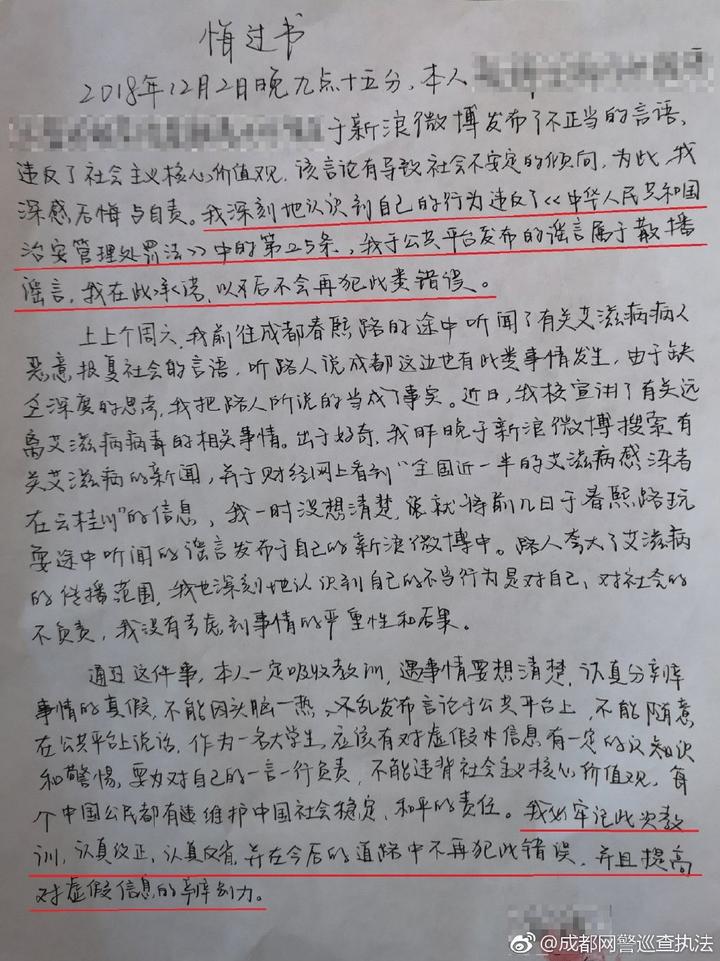 悔过书
2018年12月2日晚九点十五分,本人
于新浪微博发布了不正当的言语,
违反了社会主义核心价值观,该言论有导致社会不安定的倾向,为此,我
深感后悔与自责。我深刻地认识到自己的行为违反了《中华人民共和国
治安管理处罚法》中的第25条,我于公共平台发布的谣言属于散播
谣言,我在此承诺,以后不会再犯此类错误。
上上个周六,我前往成都春熙路的途中听闻了有关艾滋病病人
恶意报复社会的言语,听路人说成都这边也有此类事情发生,由于缺
乏深度的思考,我把路人所说的当成了事实。近日,我校宣讲了有关远
离艾滋病病毒的相关事情。出于好奇,我昨晚于新浪微博搜索有
关艾滋病的新闻,并于财经网上看到“全国近一半的艾滋病感染者
在云桂川”的信息,我一时没想清楚,就将前几日于春熙路玩
耍途中听闻的谣言发布于自己的新浪微博中。路人夸大了艾滋病
的传播范围,我也深刻地认识到自己的不当行为是对自己、对社会的
不负责,我没有考虑到事情的严重性和后果。
通过这件事,本人一定吸收教训,遇事情要想清楚,认真分辨
事情的真假,不能因头脑一热,不乱发布言论于公共平台上,不能随意
在公共平台上说话,作为一名大学生,应该有对虚假信息有一定的认知识
和警惕,要对自己的一言一行负责,不能违背社会主义核心价值观,每
个中国公民都有维护中国社会稳定、和平的责任。我必牢记此次教
训,认真改正,认真反省,并在今后的道路中不再犯此错误,并且提高
对虚假信息的辨别力。
@成都网警巡查执法